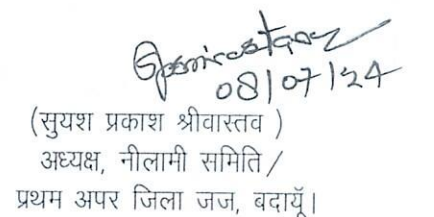 08/07/24
(सुयश प्रकाश श्रीवास्तव )
अध्यक्ष, नीलामी समिति /
प्रथम अपर जिला जज, बदायूँ।